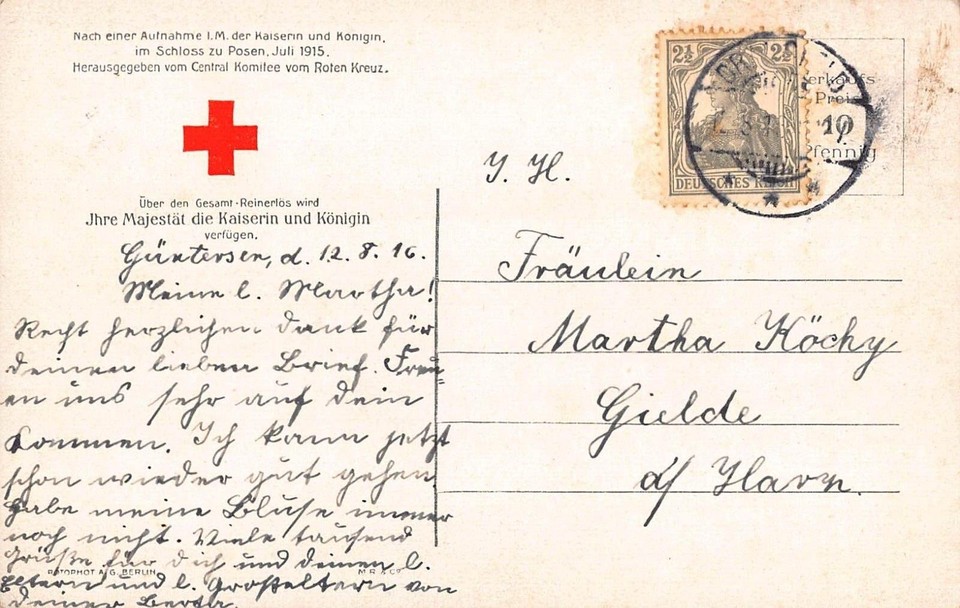 Nach einer Aufnahme I.M. der Kaiserin und Königin,
im Schloss zu Posen, Juli 1915.
Herausgegeben vom Central Komitee vom Roten Kreuz.
Über den Gesamt-Reinerlös wird
Jhre Majestät die Kaiserin und Königin
verfügen.
Güntersen, d. 12. 8. 16.
Meine l. Martha!
Recht herzlichen Dank für
deinen lieben Brief. Freu-
en uns sehr auf dein
Kommen. Ich kann jetzt
schon wieder gut gehen
habe meine Bluse immer
noch nicht. Viele tausend
Grüße für dich und deinen l.
Eltern und l. Großeltern von
deiner Berta.
ROTOPHOT A.G. BERLIN
2½ 2½
DEUTSCHES REICH
Verkaufs
Preis
10
Pfennig
Fräulein
Martha Köchy
Gielde
a/ Harz.